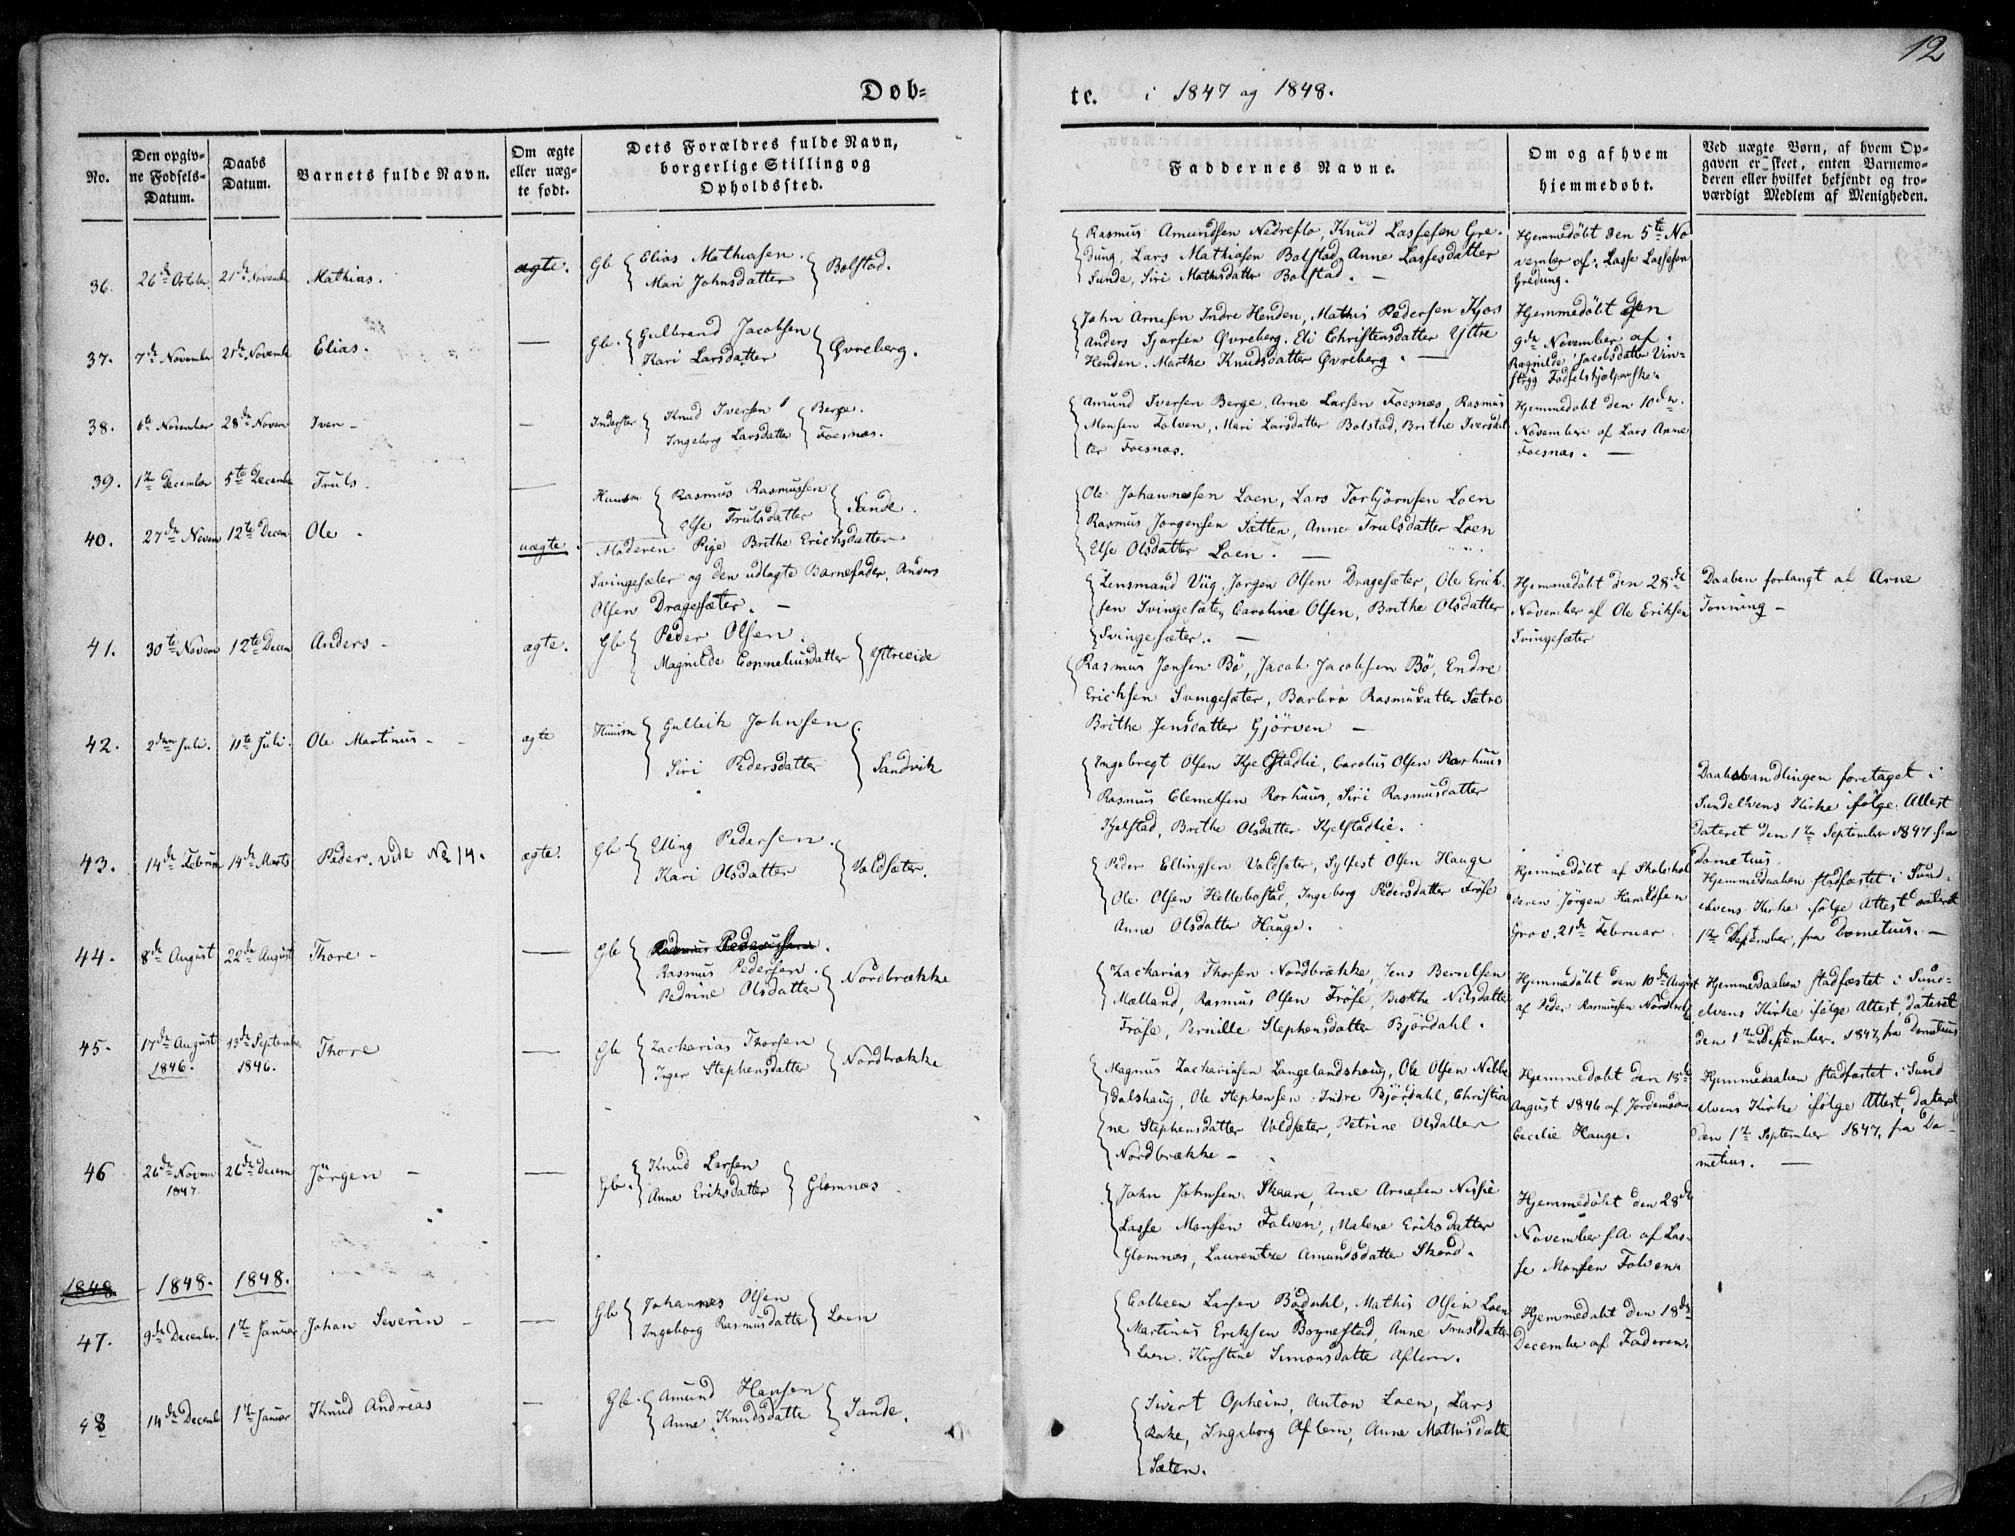 12
Døb-
te. i 1847 og 1848.
No.
Den opgiv-
ne Fødsels-
Datum.
Daabs
Datum.
Barnets fulde Navn.
Om ægte
eller uæg-
te født.
Dets Forældres fulde Navn,
borgerlige Stilling og
Opholdssted.
Faddernes Navne.
Om og af hvem
hjemmedøbt.
Ved uægte Børn, af hvem Op-
gaven er skeet, enten Barnemo-
deren eller hvilket bekjendt og tro-
værdigt Medlem af Menigheden.
36. 26de October 21de November Mathias. ægte. Gb Elias Mathiasen.
Mari Johnsdatter Bolstad.
Rasmus Amundsen Nedreflo, Knud Lassesen Gre-
dung, Lars Mathiasen Bolstad, Anne Lassesdatter
Sunde, Siri Mathisdatter Bolstad. —
Hjemmedøbt den 5te No
vember af Lasse Lassesen
Gredung.
37. 7de November 21de Novemb Elias. — Gb. Gulbrand Jacobsen
Kari Larsdatter Øvreberg.
John Arnesen Indre Henden, Mathis Pedersen Kjos
Anders Sjursen Øvreberg. Eli Christensdatter Yttre
Henden. Marthe Knudsdatter Øvreberg. —
Hjemmedøbt den
9de November af
Ragnilde Jacobsdatter Vin-
Fødselshjælperske.
38. 6te November 28de Novem Iver — — Inderster Knud Iversen Berge.
Ingeborg Larsdatter Foesnæs.
Amund Iversen Berge, Arne Larsen Foesnæs, Rasmus
Monsen Folven, Mari Larsdatter Bolstad, Brithe Iversdat
ter Foesnæs.
Hjemmedøbt den 10de
November af Lars Anne
Foesnæs. —
39. 1te December 5te Decemb Truls. — Huusm Rasmus Rasmussen
Else Trulsdatter Sande.
Ole Johannesen Loen, Lars Torbjørnsen Loen
Rasmus Jørgensen Sætten, Anne Trulsdatter Loen
Else Olsdatter Loen. —
40. 27de Novem 12te Decem Ole. uægte. Moderen Pige Brithe Erichsdatter
Svingesæter og den udlagte Barnefader, Anders
Olsen Dragesæter. —
Lensmand Viig, Jørgen Olsen Dragesæter, Ole Erich-
sen Svingesæter, Caroline Olsen, Brithe Olsdatter
Svingesæter. —
Hjemmedøbt den 28de
November af Ole Eriksen
Svingesæter
Daaben forlangt af Arne
Tonning —
41. 30te Novem 12te Decem Anders — ægte. Gb Peder Olsen.
Magnilde Corneliusdatter Ytreeide
Rasmus Jensen Bø, Jacob Jacobsen Bø, Endre
Erichsen Svingesæter, Barbro Rasmusdatter Sætre
Brithe Jensdatter Gjørven —
42. 2den Juli. 11te Juli. Ole Martinus — ægte Huusm Gulleik Johnsen
Siri Pedersdatter Sandvik
Ingebregt Olsen Kjelstadlie, Carolus Olsen Rørhuus
Rasmus Clemetsen Rørhuus, Siri Rasmusdatter
Kjelstad, Brithe Olsdatter Kjelstadlie.
Daabshandlingen foretaget i
Sundelvens Kirke ifølge Attest
dateret den 1te September 1847 fra
Dometius.
43. 14de Februar 14de Marts Peder. vide No 14. ægte. Gb Elling Pedersen.
Kari Olsdatter Valdsæter.
Peder Ellingsen Valdsæter, Sylfest Olsen Hauge
Ole Olsen Hellebostad, Ingeborg Pedersdatter Frøse
Anne Olsdatter Hauge.
Hjemmedøbt af Skolehol
deren Jørgen Haraldsen
Grov. 21de Februar
Hjemmedaaben stadfæstet i Sund-
elvens Kirke ifølge Attest dateret
1te September, fra Dometius. —
44. 8de August 22de August Thore — — Gb Rasmus Pedersen.
Rasmus Pedersen.
Pedrine Olsdatter Nordbrække
Zackarias Thorsen Nordbrække, Jens Berntsen
Mælland, Rasmus Olsen Frøse, Berthe Nilsdatter
Frøse, Pernille Stephensdatter Bjørdahl.
Hjemmedøbt den 10de August
af Peder Rasmussen Nordbrek
Hjemmedaaben stadfæstet i Sund-
elvens Kirke ifølge Attest, dateret
den 1te September. 1847, fra Dometius
45. 17de August 13de Septemb Thore — Gb Zackarias Thorsen
1846. 1846.
Inger Stephensdatter Nordbrække
Magnus Zachariasen Langelandshaug, Ole Olsen Nibbe
dalshaug, Ole Stephensen Indre Bjørdahl, Christia
ne Stephensdatter Valdsæter, Petrine Olsdatter
Nordbrække —
Hjemmedøbt den 15de
August 1846 af Jordemoder
Cecilie Hauge.
Hjemmedaaben stadfæstet i Sund
elvens Kirke ifølge Attest, dateret
den 1te September 1847, fra Do-
metius. —
46 26de Novem 26de Decem Jørgen — — Gb. Knud Larsen
1847
Anne Eriksdatter Glomnæs
John Johnsen Skaare, Arne Arnesen
Lasse Monsen Folven, Malene Eriksdatter
Glomnæs, Laurentze Amundsdatter Skaare.
Hjemmedøbt den 28de
November s.A af Las-
se Monsen Folven.
1848 1848. 1848.
47. 9de December. 1te Januar Johan Severin — — Gb Johannes Olsen
Ingeborg Rasmusdatte Loen
Colbeen Larsen Bødahl, Mathis Olsen Loen
Martinus Eriksen Brynestad, Anne Trulsdatter
Loen. Kirstine Simonsdatte Aflem.
Hjemmedøbt den 18de
December af Faderen.
48 14de Decemb 1te Januar Knud Andreas — Gb. Amund Hansen
Anne Knudsdatte Sande.
Sivert Opheim, Anton Loen, Lars
Rake, Ingeborg Aflem, Anne Mathisdatte
Sæten.